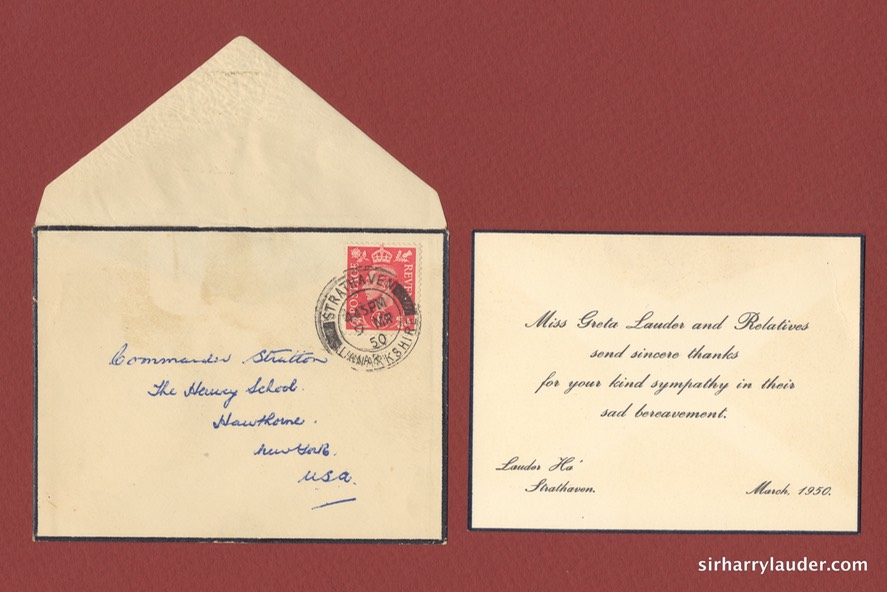 POSTAGE REVEN
STRATHAVEN
PM
MR
50
LANARKSHIRE
Commander Stratton
The Harvey School.
Hawthorne.
New York.
USA.
Miss Greta Lauder and Relatives
send sincere thanks
for your kind sympathy in their
sad bereavement.
Lauder Ha'
Strathaven.
March, 1950.
sirharrylauder.com